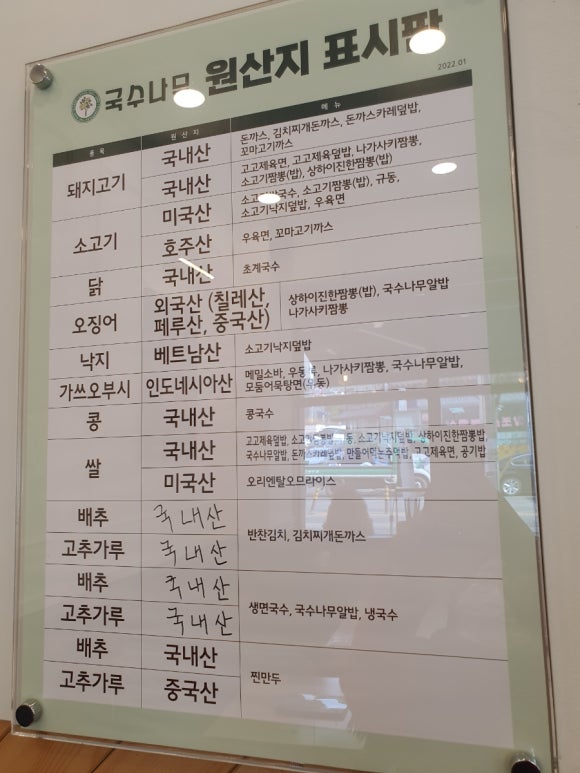 국수나무 원산지 표시판
2022.01
품목 원산지 메뉴
돼지고기 국내산 돈까스, 김치찌개돈까스, 돈까스카레덮밥,
꼬마고기까스
국내산 고고제육면, 고고제육덮밥, 나가사키짬뽕,
소고기짬뽕(밥), 상하이진한짬뽕(밥)
소고기 미국산 소고기짬뽕(밥), 규동,
소고기낙지덮밥, 우육면
호주산 우육면, 꼬마고기까스
닭 국내산 초계국수
오징어 외국산 (칠레산,
페루산, 중국산) 상하이진한짬뽕(밥), 국수나무알밥
나가사키짬뽕
낙지 베트남산 소고기낙지덮밥
가쓰오부시 인도네시아산 메밀소바, 나가사키짬뽕, 국수나무알밥,
모둠어묵탕면(우동)
콩 국내산 콩국수
쌀 국내산 고고제육덮밥, 소고기낙지덮밥, 상하이진한짬뽕밥,
국수나무알밥, 돈까스카레덮밥, 만들어먹는주먹밥, 고고제육면, 공기밥
미국산 오리엔탈오므라이스
배추 국내산
고추가루 국내산
반찬김치, 김치찌개돈까스
배추 국내산
고추가루 국내산
생면국수, 국수나무알밥, 냉국수
배추 국내산
고추가루 중국산
찐만두